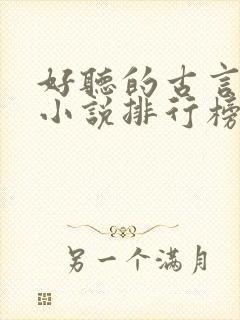 好聽的古言
小說排行榜
另一个滿月